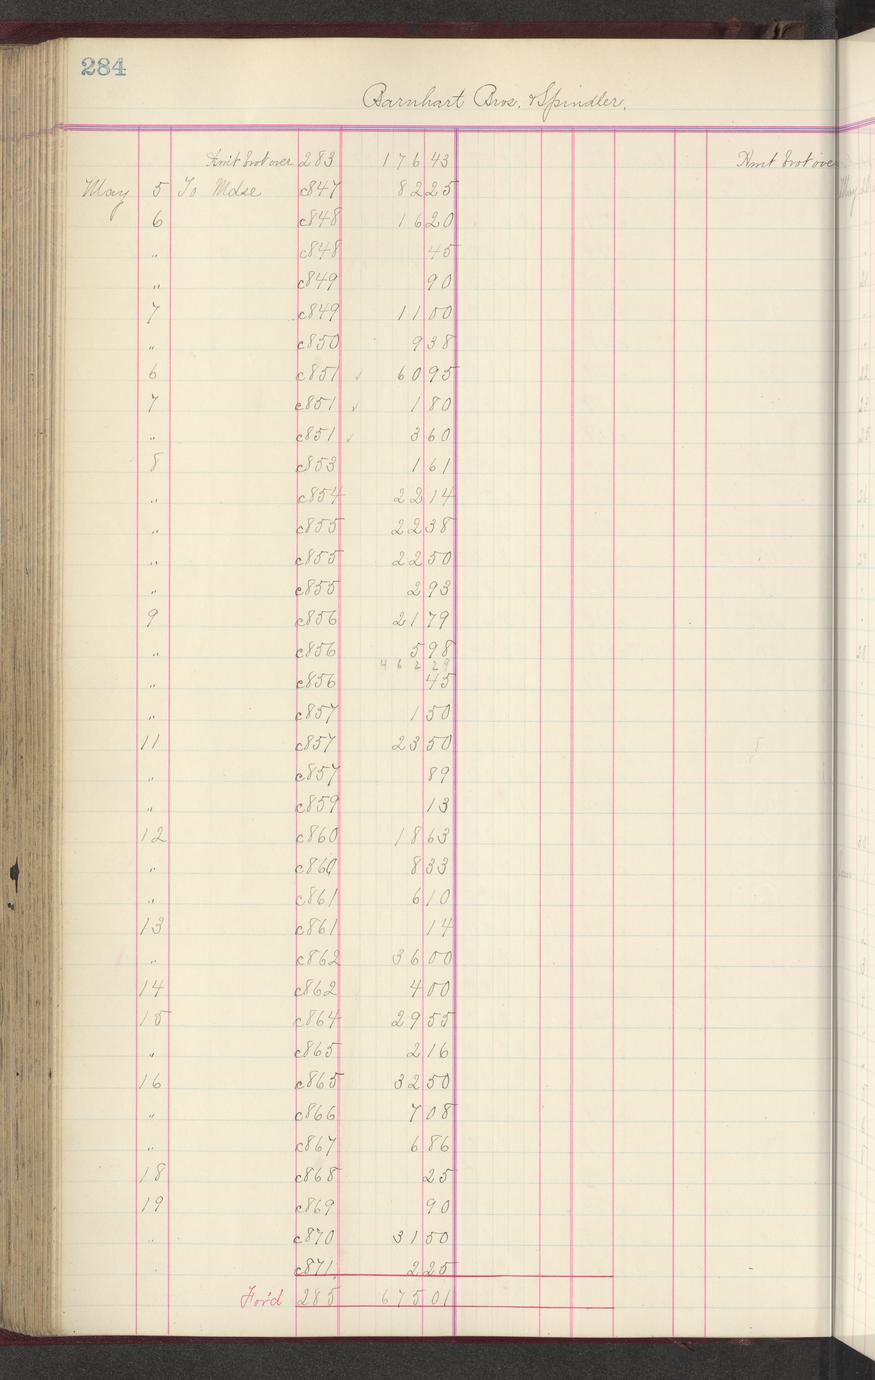 284
Barnhart Bros. & Spindler.
Amt brot over 283 176 43 Amt brot over
May 5 To Mdse c847 82 25
6 c848 16 20
" c848 45
" c849 90
7 c849 11 00
" c850 9 38
6 c851 ✓ 60 95
7 c851 ✓ 1 80
" c851 ✓ 3 60
8 c853 1 61
" c854 22 14
" c855 22 38
" c855 22 50
" c855 2 93
9 c856 21 79
" c856 5 98
462 29
" c856 45
" c857 1 50
11 c857 23 50
" c857 89
" c859 13
12 c860 18 63
" c860 8 33
" c861 6 10
13 c861 14
" c862 36 00
14 c862 4 00
15 c864 29 55
" c865 2 16
16 c865 32 50
" c866 7 08
" c867 6 86
18 c868 25
19 c869 90
" c870 31 50
" c871 2 25
For'd 285 675 01